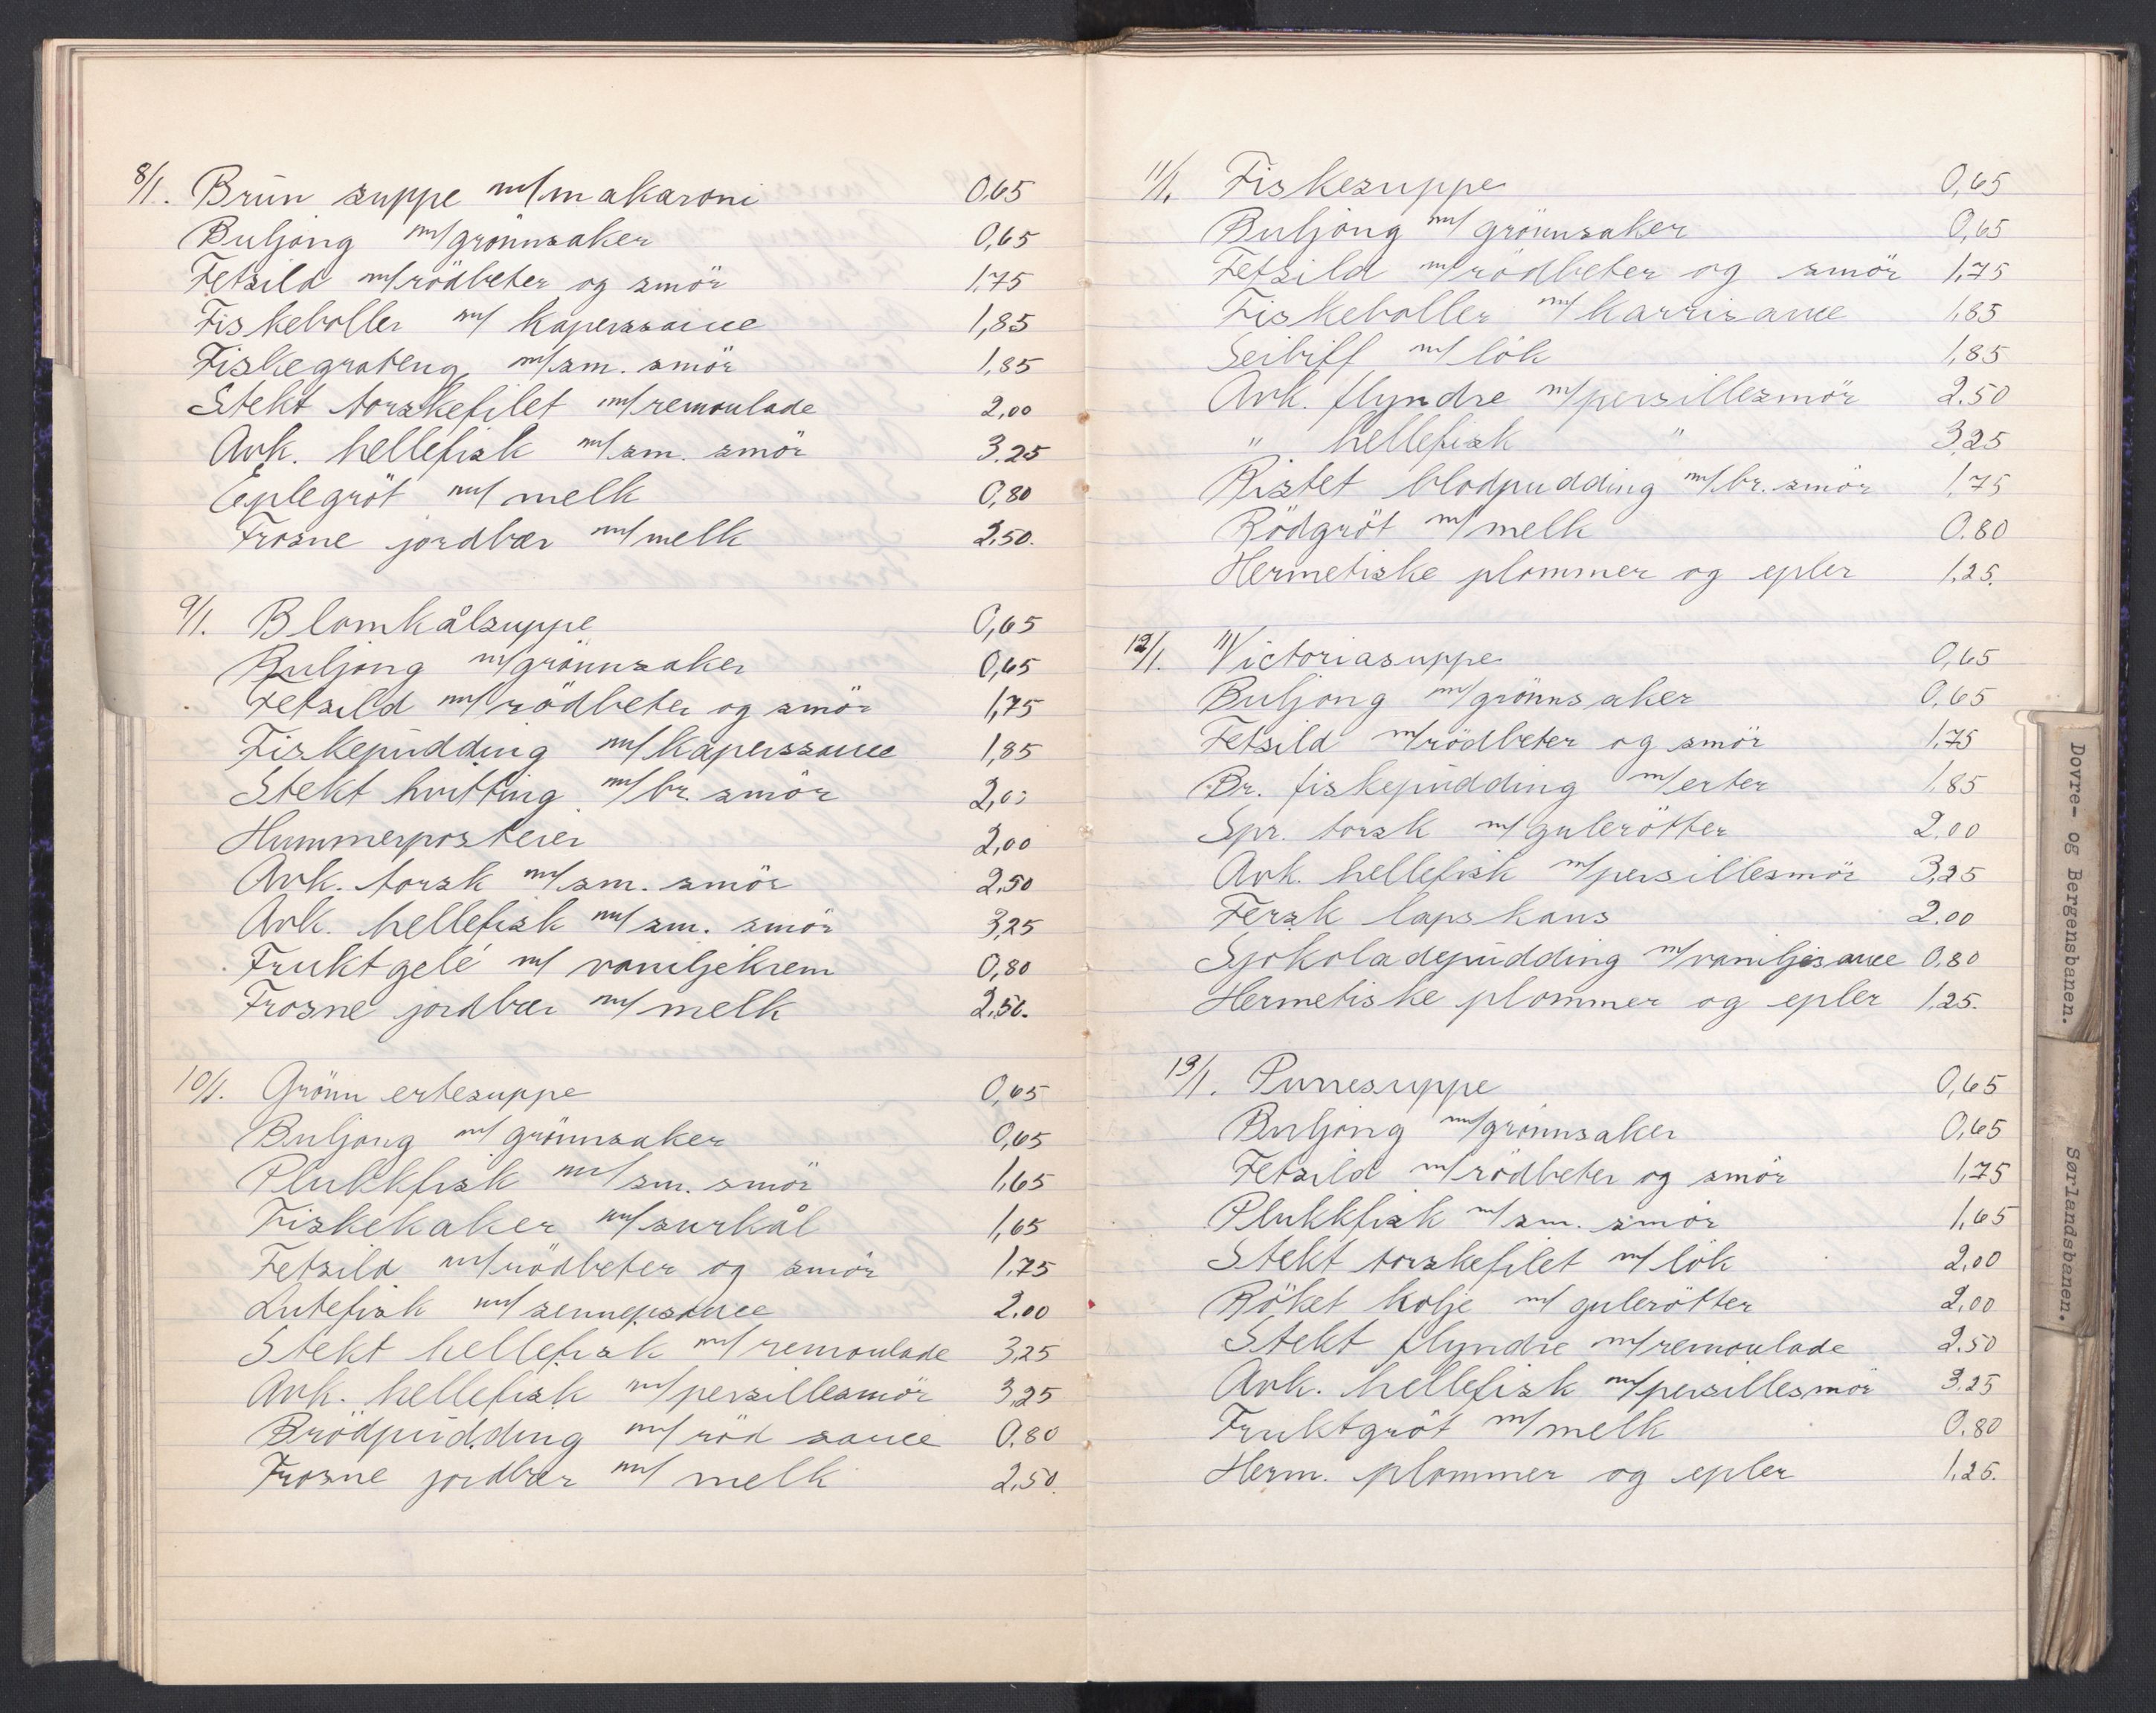 8/1. Brun suppe m/makaroni 0,65
Buljong m/grönnsaker 0,65
Fetsild m/rödbeter og smör 1,75
Fiskeboller m/ kaperssauce 1,85
Fiskegrateng m/sm. smör 1,85
Stekt torskefilet m/remoulade 2,00
Avk. hellefisk m/sm. smör 3.25
Eplegröt m/ melk 0,80
Frosne jordbær m/melk 2,50.
9/1. Blomkålsuppe 0,65
Buljong m/grönnsaker 0,65
Fetsild m/rödbeter og smör 1,75
Fiskepudding m/kaperssauce 1,85
Stekt hvitting m/br. smör 2,00
Hummerposteier 2,00
Avk. torsk m/sm. smör 2,50
Avk. hellefisk m/sm. smör 3,25
Fruktgelé m/ vaniljekrem 0,80
Frosne jordbær m/ melk 2,50.
10/1. Grönn ertesuppe 0,65
Buljong m/ grönnsaker 0,65
Plukkfisk m/sm. smör 1,65
Fiskekaker m/surkål 1,65
Fetsild m/rödbeter og smör 1.75
Lutefisk m/sennepsauce 2.00
Stekt hellefisk m/remoulade 3,25
Avk. hellefisk m/persillesmör 3,25
Brödpudding m/röd sauce 0.80
Frosne jordbær m/ melk 2,50.
11/1. Fiskesuppe 0,65
Buljong m/grönnsaker 0,65
Fetsild m/rödbeter og smör 1,75
Fiskeboller m/karrisauce 1,85
Seibiff m/ lök 1,85
Avk. flyndre m/persillesmör 2.50
" hellefisk " 3,25
Ristet blodpudding m/br. smör 1,75
Rödgröt m/melk 0.80
Hermetiske plommer og epler 1.25.
12/1. Victoriasuppe 0,65
Buljong m/grönnsaker 0,65
Fetsild m/rödbeter og smör 1.75
Br. fiskepudding m/erter 1.85
Spr. torsk m/gulerötter 2.00
Avk. hellefisk m/persillesmör 3,25
Fersk lapskaus 2.00
Sjokoladepudding m/vaniljesauce 0.80
Hermetiske plommer og epler 1,25.
13/1. Purresuppe 0,65
Buljong m/grönnsaker 0,65
Fetsild m/rödbeter og smör 1,75
Plukkfisk m/sm. smör 1,65
Stekt torskefilet m/lök 2,00
Röket kolje m/ gulerötter 2,00
Stekt flyndre m/remoulade 2.50
Avk. hellefisk m/persillesmör 3.25
Fruktgröt m/melk 0.80
Herm. plommer og epler 1,25.
Dovre- og Bergensbanen.
Sørlandsbanen.